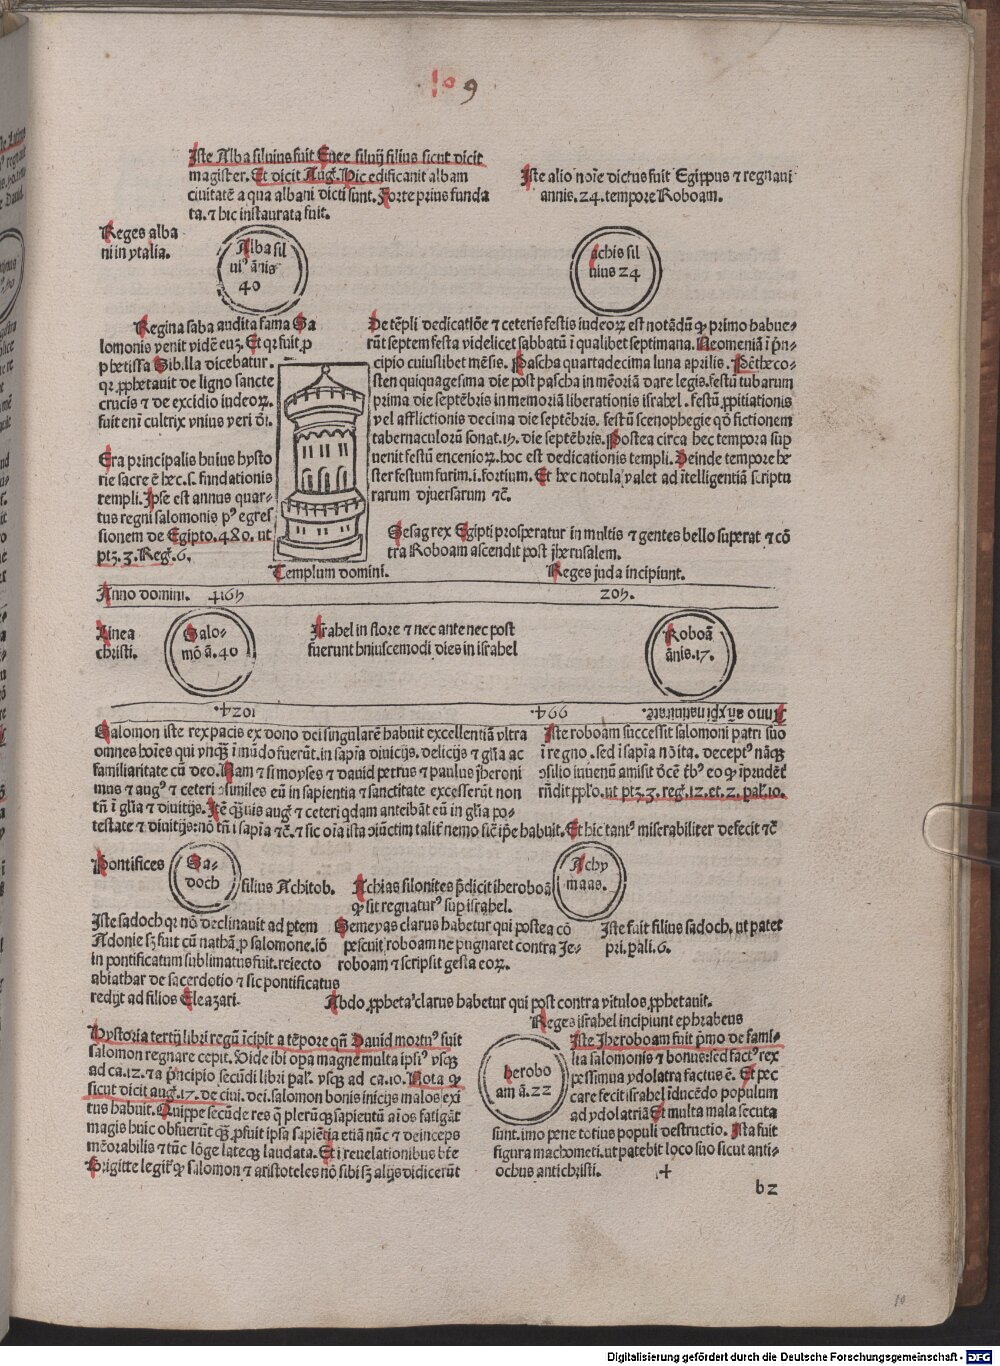 109
Iste Alba siluius fuit Enee siluij filius sicut dicit
magister. Et dicit Aug. Hic edificauit albam
ciuitatē a qua albani dicti sunt. Forte prius funda
ta. ⁊ hic instaurata fuit.
Iste alio noīe dictus fuit Egippus ⁊ regnaui
annis. 24. tempore Roboam.
Reges alba
ni in ytalia.
Alba sil
uiꝰ ānis
40
achis sil
uius 24
Regina saba audita fama Sa
lomonis venit vidē euʒ. Et qꝛ fuit ꝓ
phetissa Sibilla dicebatur.
qꝛ ꝓphetauit de ligno sancte
crucis ⁊ de excidio iudeoꝝ.
fuit enī cultrix vnius veri dī.
Era principalis huius hysto
rie sacre ē hec. s. fundationis
templi. Ipse est annus quar-
tus regni salomonis pꝰ egres
sionem de Egipto. 480. ut
ptʒ. 3. Reg. 6.
De tēpli dedicatiōe ⁊ ceteris festis iudeoꝝ est notādū ꝙ primo habue-
rūt septem festa videlicet sabbatū ī qualibet septimana. Neomeniā ī pn̄-
cipio cuiuslibet mēsis. Pascha quartadecima luna aprilis. Pētheco-
sten quiquagesima die post pascha in mēoriā date legis. festū tubarum
prima die septēbris in memoriā liberationis israhel. festū ꝓpitiationis
vel afflictionis decima die septēbris. festū scenophegie qd̄ fictionem
tabernaculorū sonat. 15. die septēbris. Postea circa hec tempora sup
uenit festū encenioꝝ. hoc est dedicationis templi. Deinde tempore he
ster festum furim. i. sortium. Et hec notula valet ad ītelligentiā scriptu
rarum diuersarum ⁊c̄.
Sesag rex Egipti prosperatur in multis ⁊ gentes bello superat ⁊ cō
tra Roboam ascendit post jherusalem.
Templum domini.
Reges juda incipiunt.
Anno domini. 4165
205.
Linea
christi.
Salo-
mō ā. 40
Israhel in flore ⁊ nec ante nec post
fuerunt huiuscemodi dies in israhel
Roboā
ānis. 17.
1034.
994.
Anno an̄ xp̄i natiuitatē.
Salomon iste rex pacis ex dono dei singularē habuit excellentiā vltra
omnes hoīes qui vnqꝫ ī mūdo fuerūt. in sapīa diuicijs. delicijs ⁊ glīa ac
familiaritate cū deo. Nam ⁊ si moyses ⁊ dauid petrus ⁊ paulus jheroni
mus ⁊ augꝰ ⁊ ceteri ɔsimiles eū in sapientia ⁊ sanctitate excesserūt non
tn̄ ī glīa ⁊ diuitijs. Itē qꝫuis augꝰ ⁊ ceteri qdam anteibāt eū in glīa po-
testate ⁊ diuitijs: nō tn̄ ī sapīa ⁊c̄. ⁊ sic oīa ista ɔiūctim talir̄ nemo sic īpe habuit. Et hic tantꝰ miserabiliter defecit ⁊c̄
Iste roboam successit salomoni patri suo
ī regno. sed ī sapīa nō ita. deceptꝰ nāqꝫ
ɔsilio iuuenū amisit
ut ptʒ. 3. reg. 12. et. 2. pal. 10.
Pontifices
Sa-
doch
filius Achitob.
Achias silonites p̄dicit iheroboā
ꝙ sit regnaturꝰ suꝑ israhel.
Achy
maas.
Iste sadoch qꝛ nō declinauit ad ꝑtem
Adonie sʒ fuit cū nathā ꝓ salomone. iō
in pontificatum sublimatus fuit. reiecto
abiathar de sacerdotio ⁊ sic pontificatus
redijt ad filios Eleazari.
Semeyas clarus habetur qui postea cō
pescuit roboam ne pugnaret contra Je-
roboam ⁊ scripsit gesta eoꝝ.
Iste fuit filius sadoch. ut patet
pri. pali. 6.
Abdo ꝓpheta clarus habetur qui post contra vitulos ꝓphetauit.
Reges israhel incipiunt ephrabeus
Hystoria tertij libri regū īcipit a tēpore qn̄ Dauid mortuꝰ fuit
salomon regnare cepit. Vide ibi opa magne multa ipsiꝰ vsqꝫ
ad ca. 12. ⁊ a pn̄cipio secūdi libri pal. vsqꝫ ad ca. 10. Nota ꝙ
sicut dicit aug. 17. de ciui. dei. salomon bonis inicijs malos exi
tus habuit. Quippe secūde res qꝫ plerūqꝫ sapientū aīos fatigāt
magis huic obfuerūt qꝫ ꝓfuit ipsa sapiētia etiā nūc ⁊ deinceps
mēorabilis ⁊ tūc lōge lateqꝫ laudata. Et ī reuelationibus bt̄e
Brigitte legit̄ ꝙ salomon ⁊ aristoteles nō sibi sʒ alijs didicerūt
Iherobo
am ā. 22
Iste Jheroboam fuit p̄mo de fami-
lia salomonis ⁊ bonus: sed factꝰ rex
pessimus ydolatra factus ē. Et pec
care fecit israhel īducēdo populum
ad ydolatriā Et multa mala secuta
sunt. imo pene totius populi destructio. Ista fuit
figura machometi. ut patebit loco suo sicut anti-
ochus antichristi.
b2
10
Digitalisierung gefördert durch die Deutsche Forschungsgemeinschaft - DFG